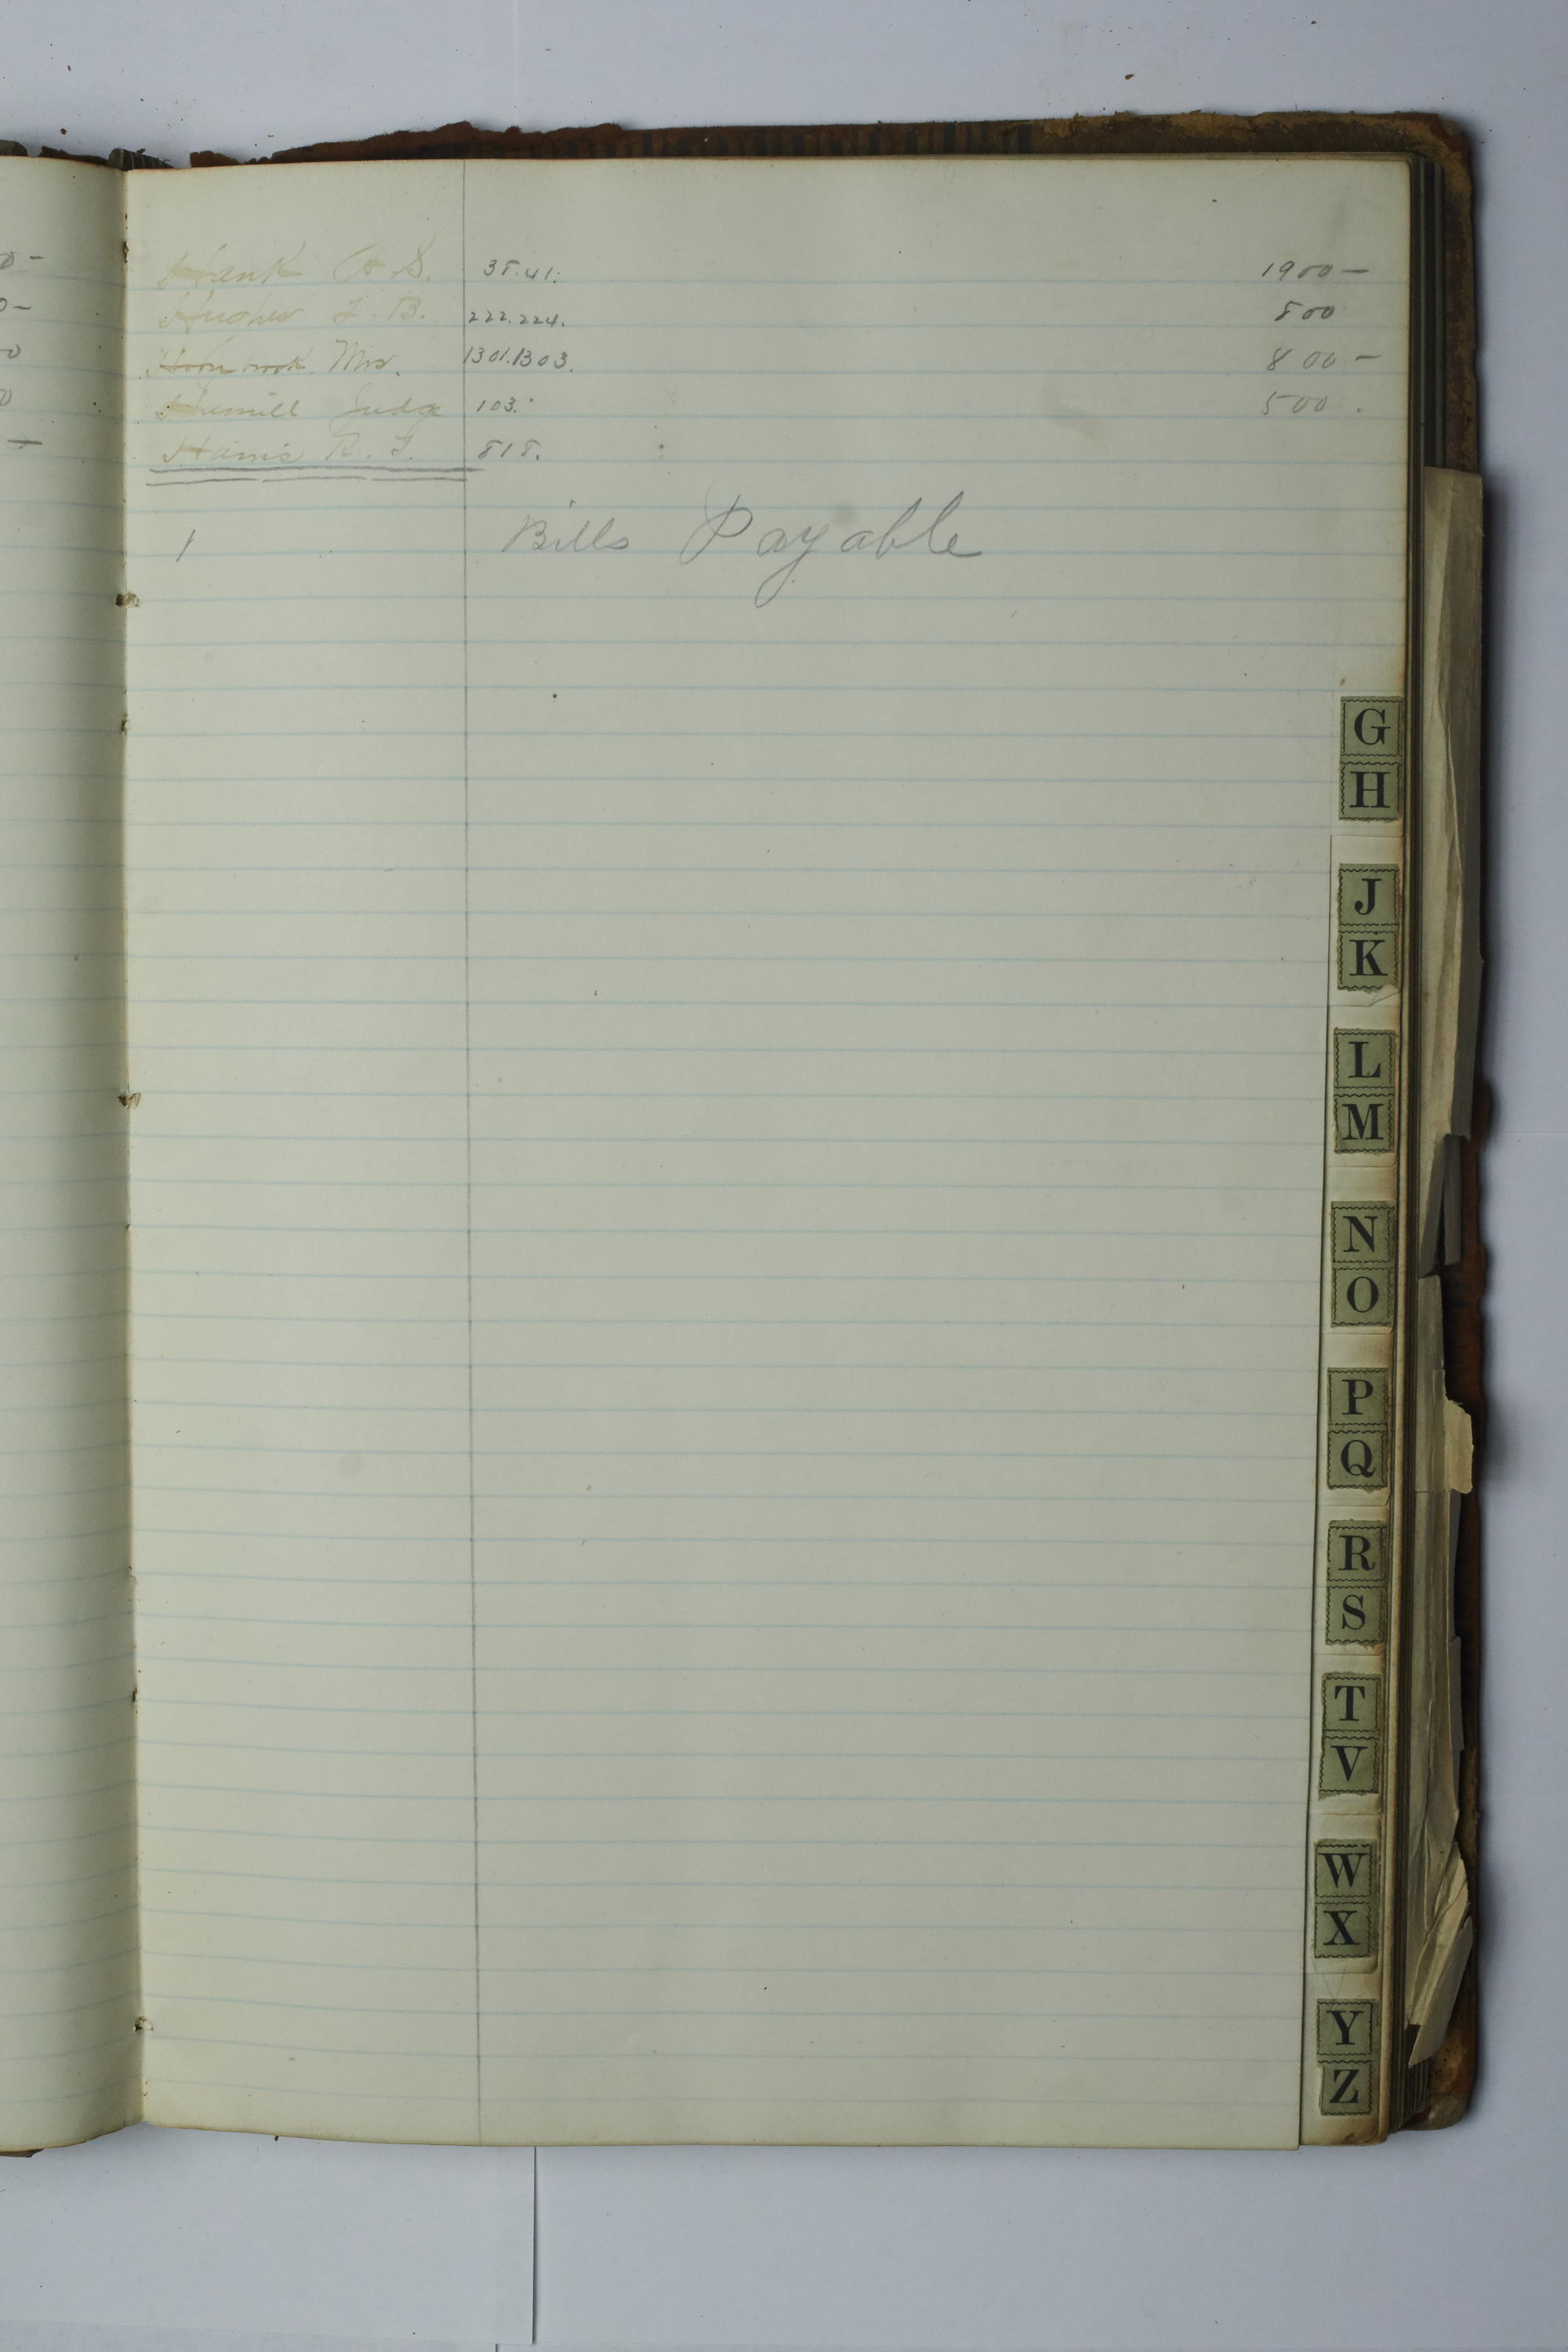 Hank A. S. 38.41. 1900 —
Hughes F. B. 222.224. 800
Hornbrook Mrs. 1301.1303. 800 —
Hamill Judge 103. 500 .
Harris R. F. 818.
1 Bills Payable
G
H
J
K
L
M
N
O
P
Q
R
S
T
V
W
X
Y
Z